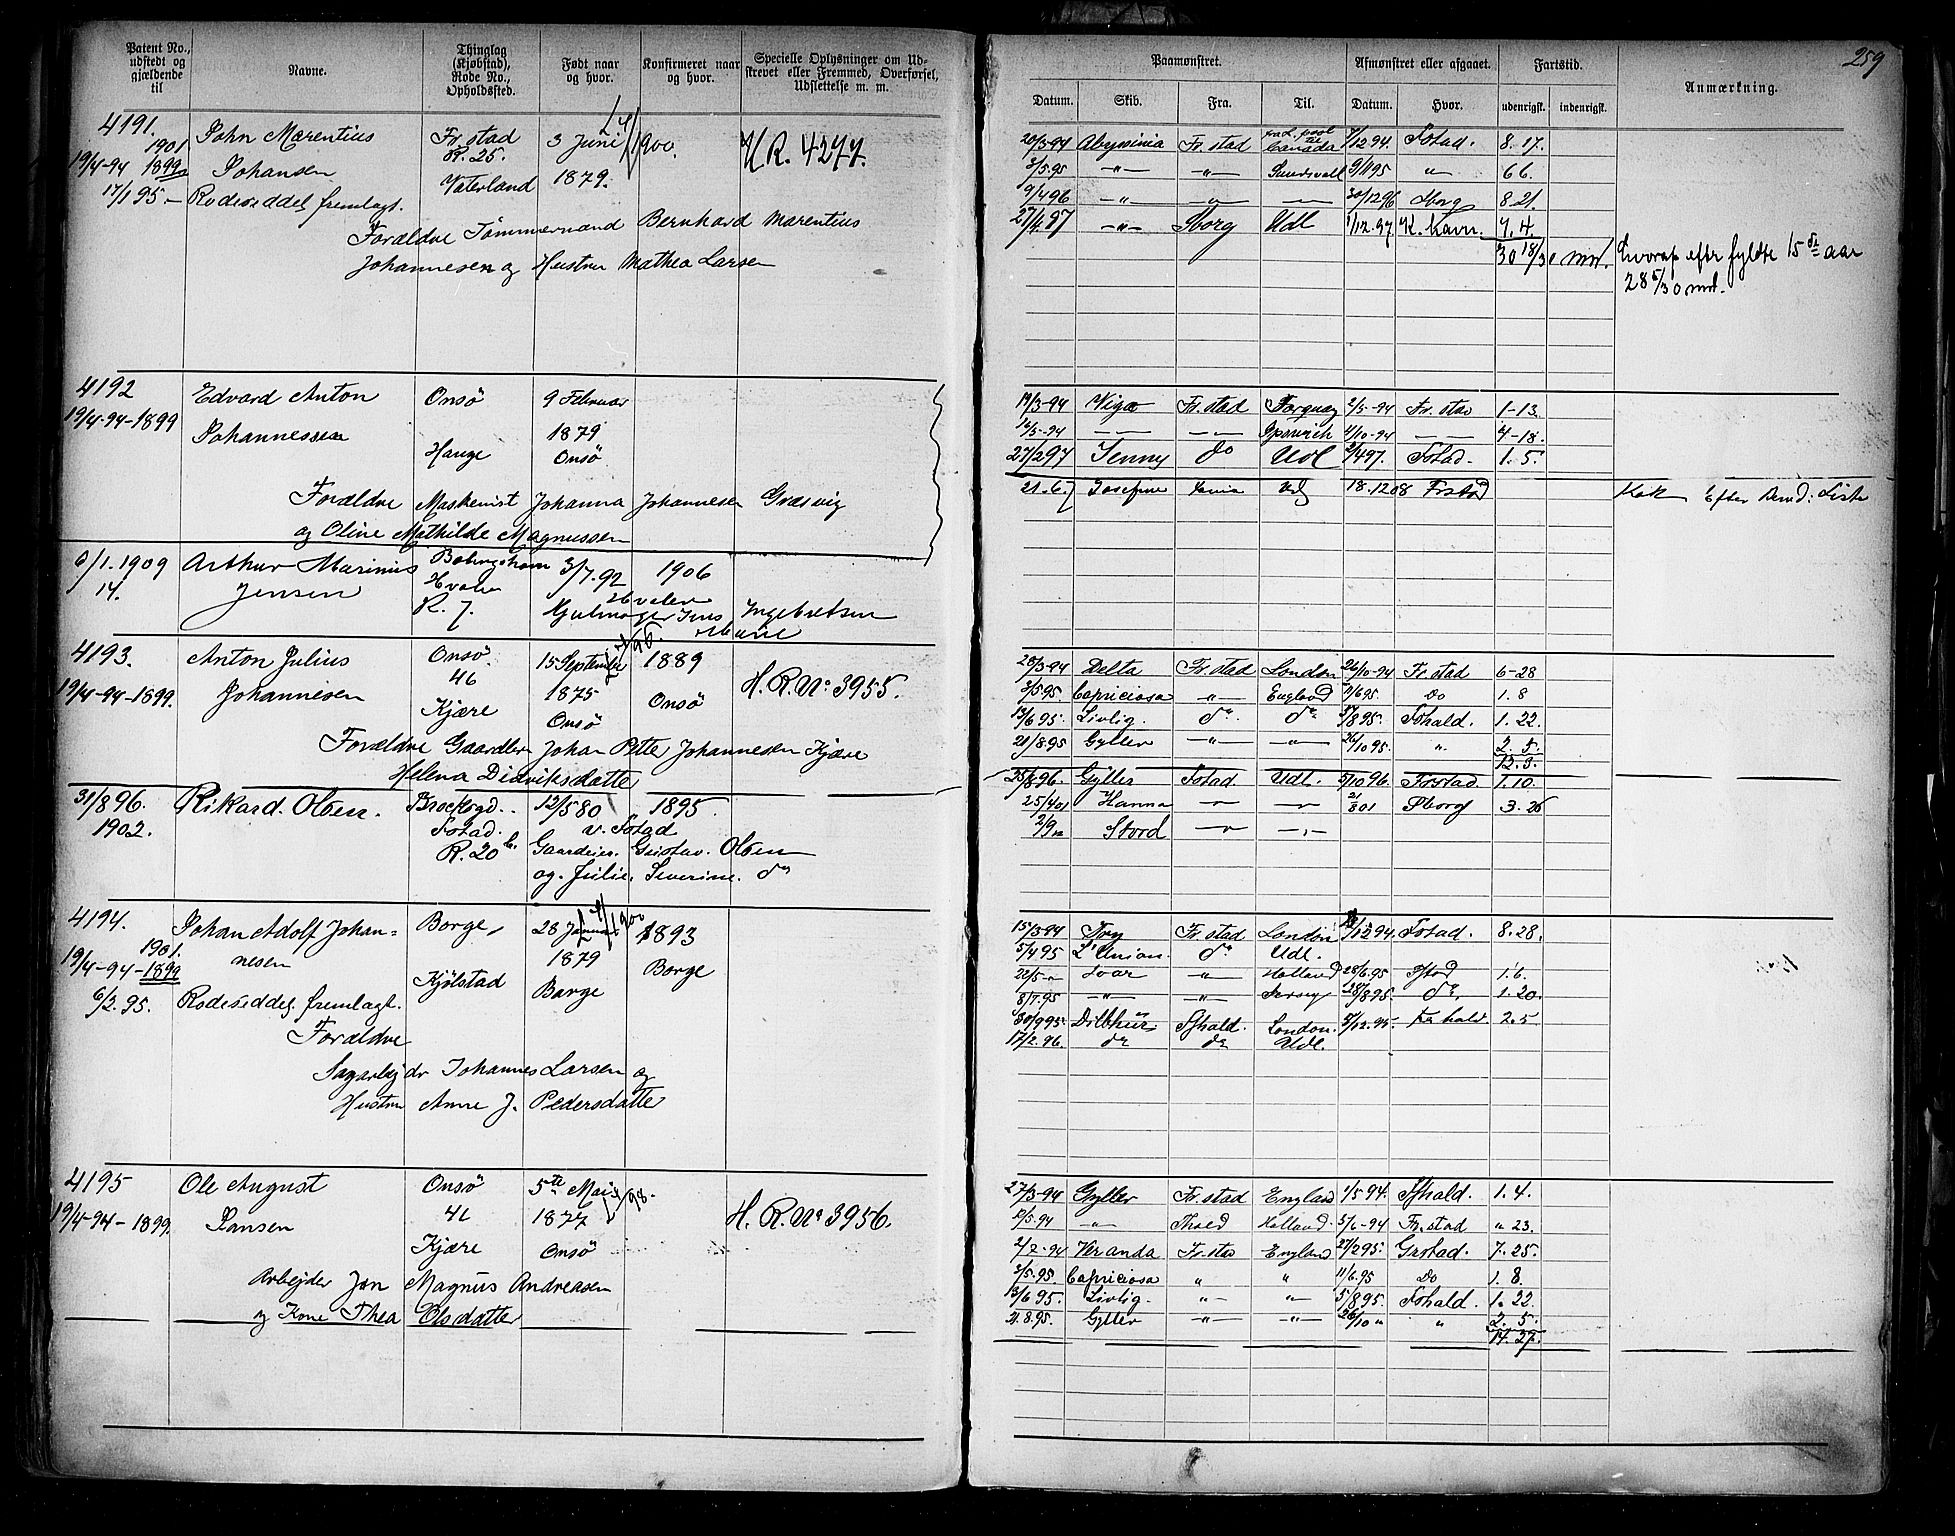 Patent No., udstedt og gjældende til
Navne.
Thinglag (Kjøbstad), Rode No., Opholdssted.
Født naar og hvor.
Konfirmeret naar og hvor.
Specielle Oplysninger om Udskrevet eller Fremmed, Overførsel, Udslettelse m. m.
4191. John Marentius Fr.stad 3 Juni 1/4 1900. H.R. 4277.
1901
19/4-94 1899 Johansen R. 25. 1879.
Vaterland
17/1 95 - Rodeseddel fremlagt.
Forældre Tømmermand Bernhard Marentius
Johannesen og Hustru Mathea Larsen
4192 Edvard Anton Onsö 9 Februar
19/4-94-1899 Johannessen 1879
Hauge Onsö
Forældre Maskinist Johanna Johannesen Græsvig
og Oline Mathilde Magnussen
6/1.1909 Arthur Marinius 3/7.92 1906
14. Jensen Hvaler Hvaler
R. 7. Jens Ingebretsen
Marie
4193. Anton Julius Onsö 15 September 1889
46
19/4-94-1899. Johannesen 1875 Onsö H.R.No 3955.
Kjære Onsö
Forældre Gaardbr. Johan Petter Johannesen Kjære
Helena Didriksdatter
31/8 96. Rikard. Olsen. 12/5 80 1895.
1902. Fstad. v. Fstad
R. 20 b. Gaardeier. Gustav. Olsen
og. Julie. Severine. do
4194. Johan Adolf Johan= Borge, 28 Januar 1/4 1900 1893
1901.
19/4-94-1899 nesen 1879 Borge
Kjølstad Borge
6/2.95. Rodeseddel fremlagt.
Forældre
Sagarbejdr Johannes Larsen og
Hustru Anne J. Pedersdatter
4195 Ole August Onsö 5te Mai 98.
19/4-94-1899. Hansen 41 1877 H.R.No 3956.
Kjære Onsö
Arbejder Jon Magnus Andreasen
og Kone Thea Olsdatter
259
Paamønstret.
Afmønstret eller afgaaet.
Fartstid.
Anmærkning.
Datum. Skib. Fra. Til. Datum. Hvor. udenrigsk. indenrigsk.
20/3-94 Abysinia Fr.stad Canada /12 94. Fstad. 8. 17.
3/5.95 -"- -"- Sundsvall 9/11 95 " 6 6.
9/4 96 -"- -"- - 30/12 96 Sborg 8.21.
27/4.97 -"- Sborg Udl 1/12.97 K. havn. 7. 4.
30 18/30 md. hvorap efter fyldte 15 de aar
28 5/30 md.
19/3-94 Viga Fr.stad Torquay 2/5-94 Fr.stad 1-13.
/5-94 - - - 4/10-94 - 4-18.
27/2 97 Jenny do Udl 2/4 97. Fstad. 1. 5.
21.6.7 Josefine Udl 18.12 08 Frstad Kok Efter Bemd: Liste
28/3-94 Delta Fr.stad London 26/10-94 Fr.stad 6-28
3/5 95. Capriciosa " England 11/6 95. Do 1. 8
13/6 95. Livlig. do. do 5/8 95. Fshald. 1. 22.
21/8.95 Gyller -"- -"- 26/10 95. " 2. 5.
12. 3.
25/6 96. Gyller Fstad. Udl. 5/10 96. Frstad. 1.10.
25/4 01 Hanna - - 21/8 01 Sborg 3. 26
2/9 02 Stord - -
15/3-94 Try Fr.stad London /12 94. Fstad. 8. 28.
5/4 95 L'Union. do Udl.
22/5- Svar " Holland 28/6.95 Fstad 1.6.
8/7.95 -"- -"- Jersey 28/8 95. do. 1. 20.
30/9 95. Dilbhur Fshald. London. 5/12.95. Frshald. 2. 5
17/2.96. do do Udl.
27/3-94 Gyller Fr.stad England 1/5 94. Fshald. 1. 4.
/5.94 -"- Fhald Holland. 5/6-94 Fr.stad " 23.
2/7-94 Veranda Fr.stad England 27/2 95. Grstad. 7. 25.
3/5.95. Capriciosa " " 11/6.95 Do 1. 8.
13/6 95. Livlig. -"- " 5/8 95. Fshald. 1. 22.
21.8.95. Gyller -"- -"- 26/10 " " 2. 5.
14. 27.